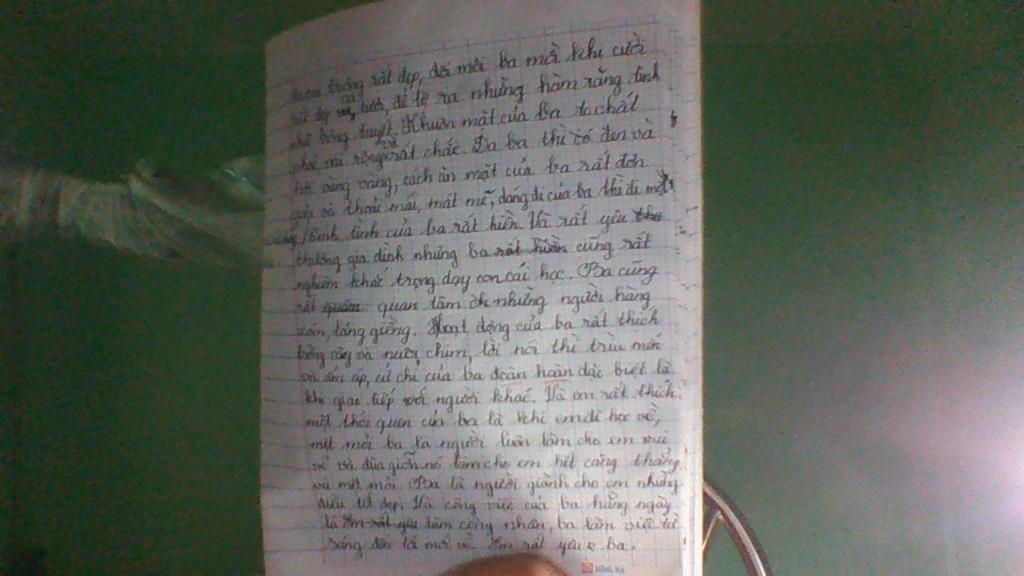 trông rất đẹp, đôi môi ba mỗi khi cười
rất đẹp và tươi, để lộ ra những hàm răng tinh
như bông tuyết. Khuôn mặt của ba to chất
phác, vai rộng và rất chắc. Da ba thì có đen và
hơi vàng vàng, cách ăn mặt của ba rất đơn
giản và thoải mái, mát mẽ, dáng đi của ba thì đi
tính tình của ba rất hiền. Và rất yêu thư
thương gia đình nhưng ba rất hiền cũng rất
nghiêm khắc trong dạy con cái học. Ba cũng
rất quan tâm những người hàng
xóm, láng giềng. Hoạt động của ba rất thích
trồng cây và nuôi chim, lời nói thì trìu mến
và ấm áp, cử chỉ của ba đoàn hoàn đặc biệt là
khi giao tiếp với người khác. Và em rất thích
một thói quen của ba là khi em đi học về,
mệt mỏi ba là người luôn làm cho em vui
vẻ và đùa giỡn nó làm cho em hết căng thẳng
và mệt mỏi. Ba là người giành cho em những
điều tốt đẹp. Và công việc của ba hằng ngày
là Em rất yêu làm công nhân, ba làm việc từ
sáng đến tối mới về. Em rất yêu ba.
HỒNG HÀ